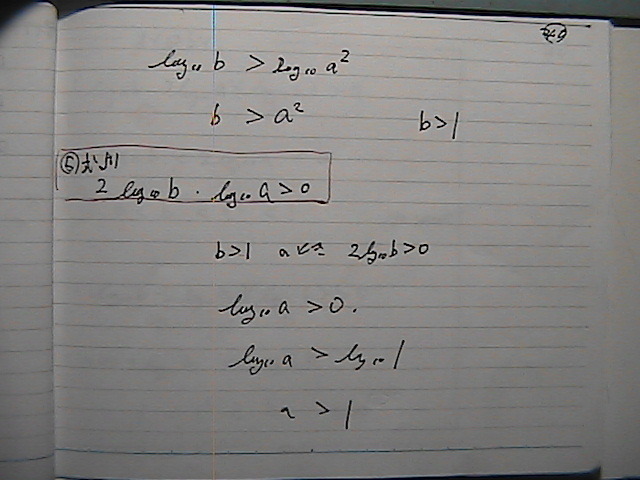 log₁₀ b > log₁₀ a²
b > a² b > 1
⑤
2 log₁₀ b · log₁₀ a > 0
b > 1 a 2 log₁₀ b > 0
log₁₀ a > 0.
log₁₀ a > log₁₀ 1
a > 1